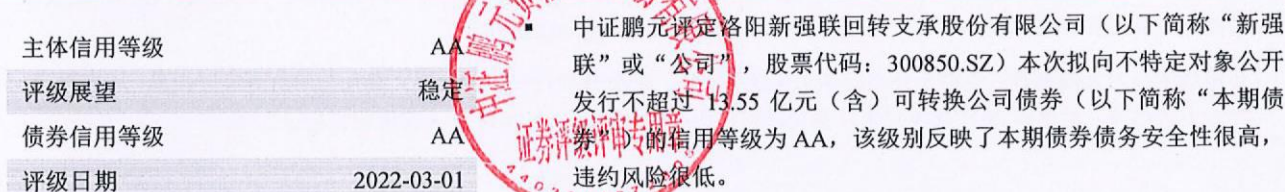 主体信用等级 AA
评级展望 稳定
债券信用等级 AA
评级日期 2022-03-01
▪ 中证鹏元评定洛阳新强联回转支承股份有限公司（以下简称“新强
联”或“公司”，股票代码：300850.SZ）本次拟向不特定对象公开
发行不超过 13.55 亿元（含）可转换公司债券（以下简称“本期债
券”）的信用等级为 AA，该级别反映了本期债券债务安全性很高，
违约风险很低。
证券评级评审专用章